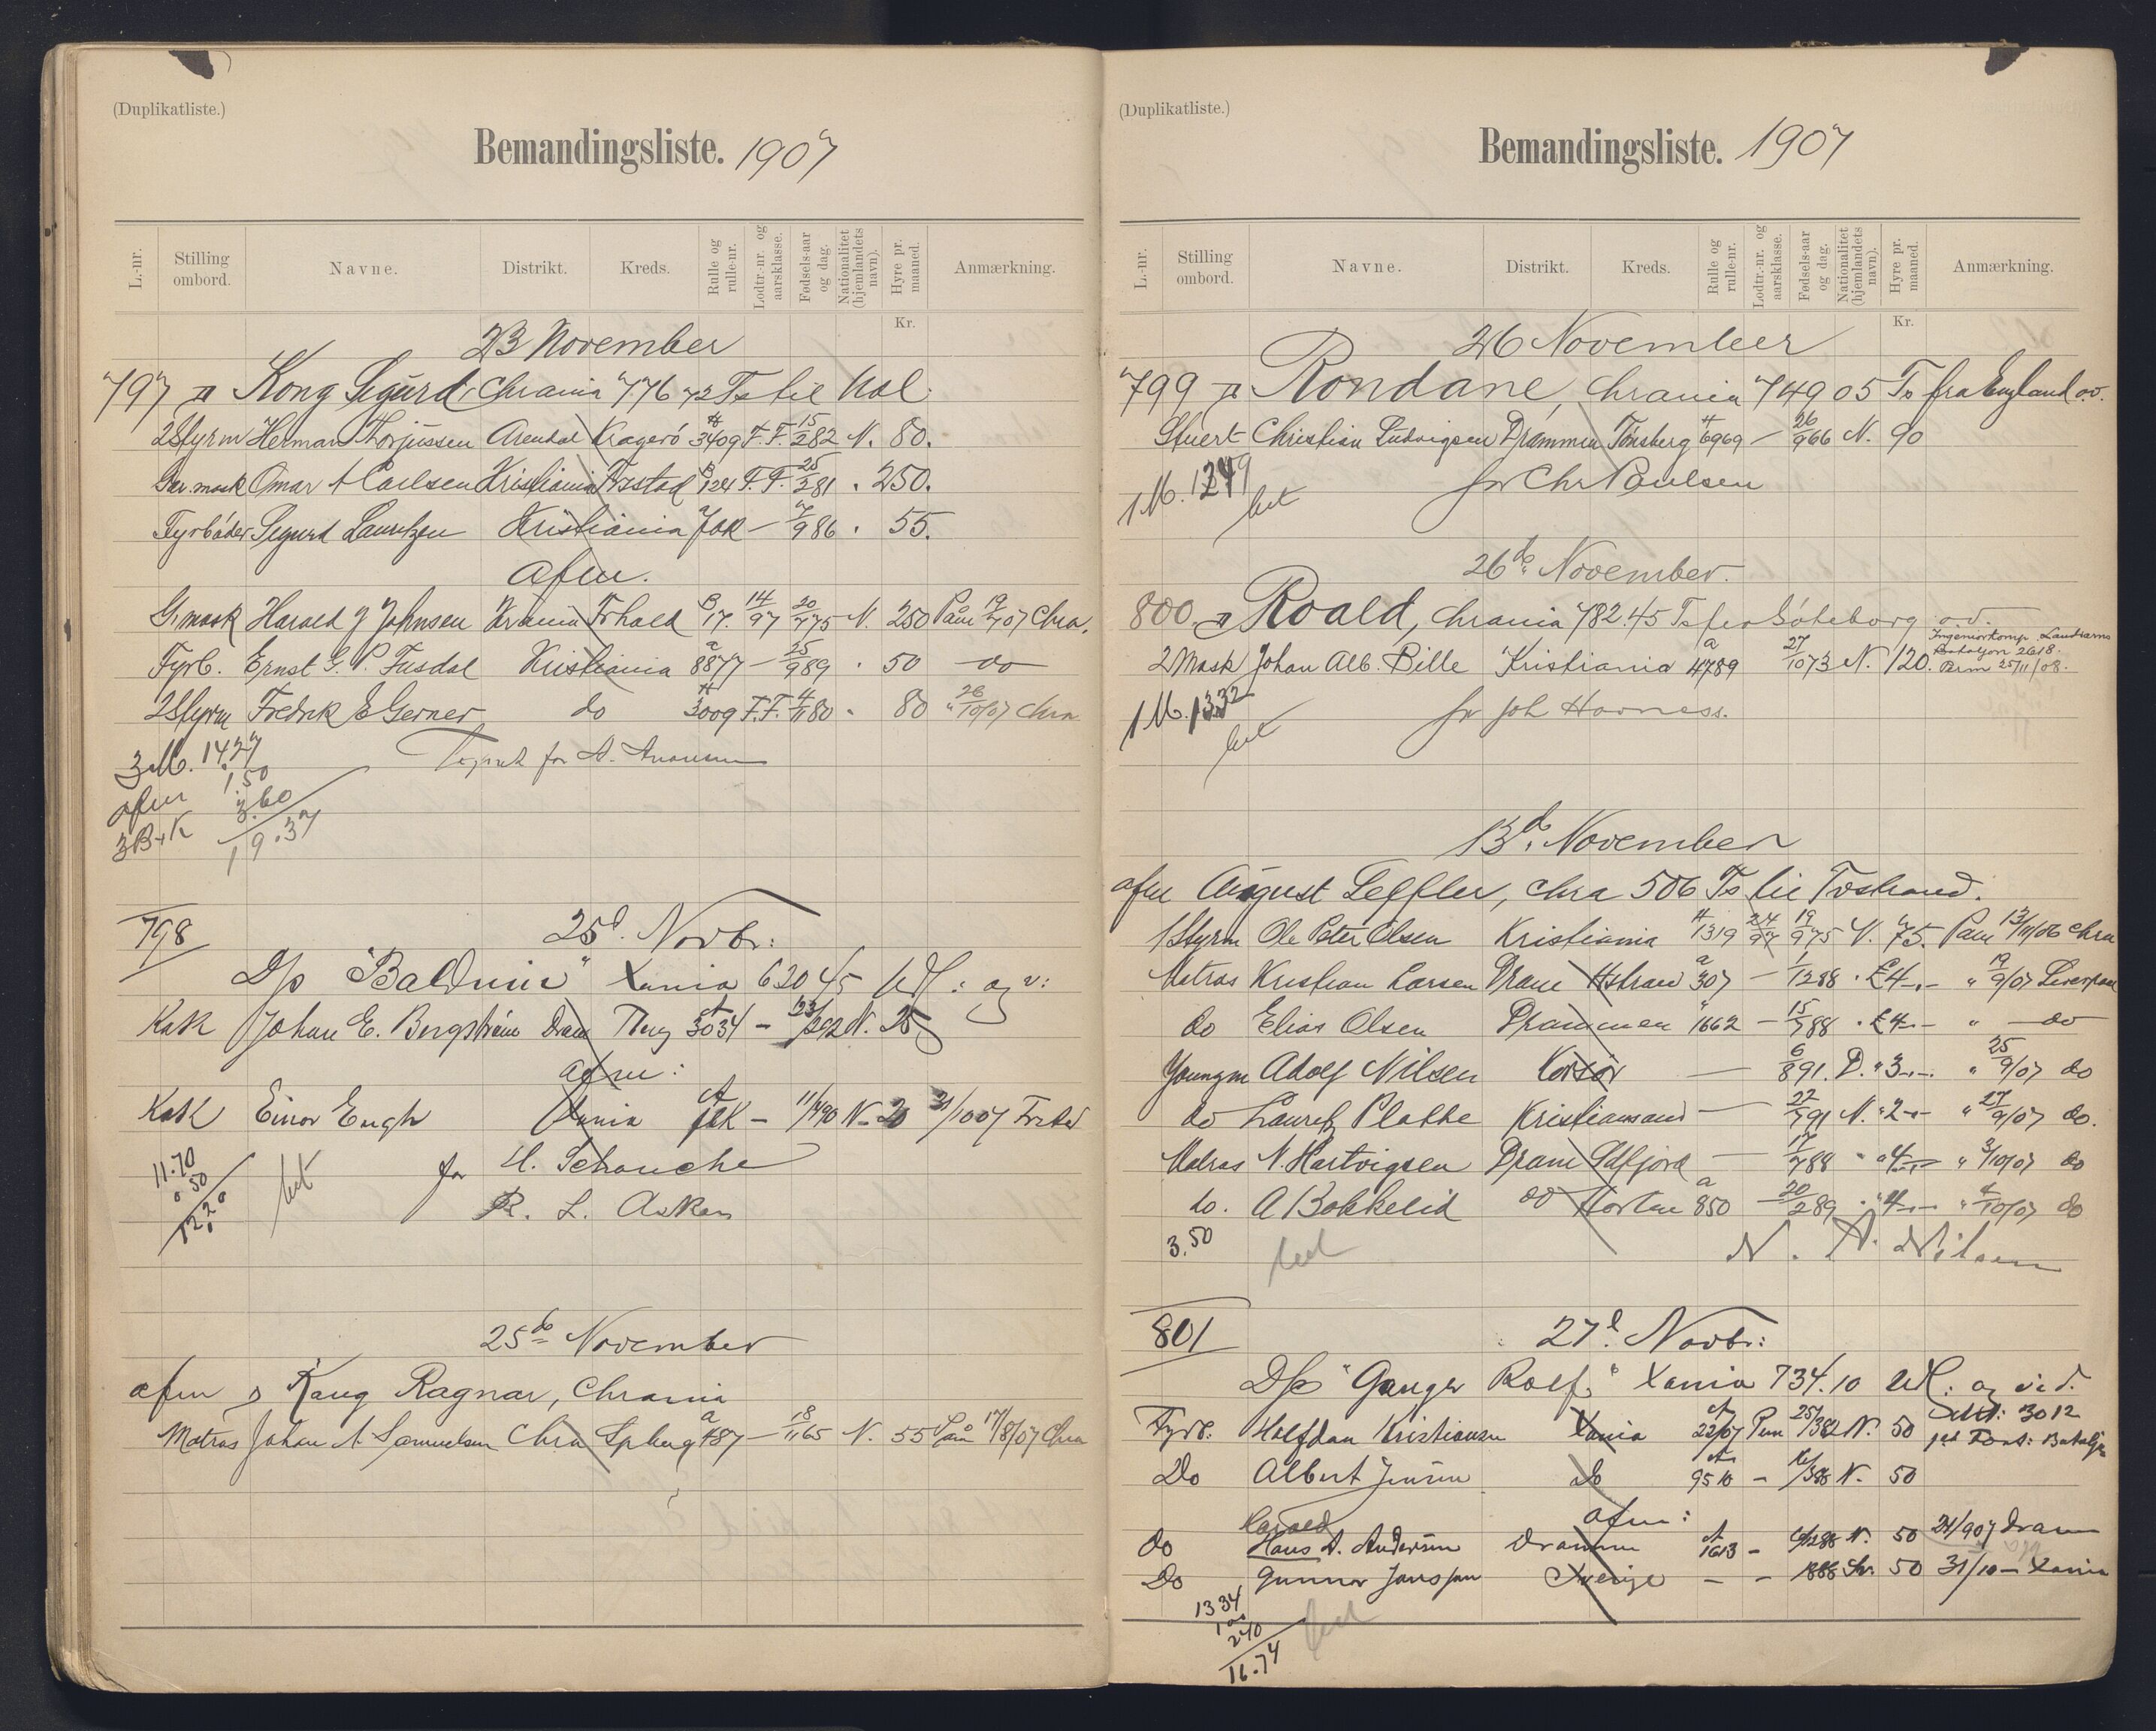 (Duplikatliste.)
Bemandingsliste. 1907
L.-nr. Stilling ombord. Navne. Distrikt. Kreds. Rulle og rulle-nr. Lodtr.-nr. og aarsklasse. Fødsels-aar og dag. Nationalitet (hjemlandets navn). Hyre pr. maaned. Anmærkning.
Kr.
23 November
797 Kong Sigurd, Chrania 776 72 Ts til Hul
2 Styrm Herman Thorjussen Arendal Kragerö 3409 F.F. 15/2 82 N. 80.
Omar A Carlsen Kristiania Frstad 124 F.F. 25/2 81 " 250.
Fyrböder Sigurd Lauritzen Kristiania JOK — 7/9 86 " 55.
Afm.
G. mask Harald J Johnsen Krania Frhald 17. 14/97 20/7 75 N. 250 Paam 19/7 07 Chra.
Fyrb. Ernst G. P. Fusdal Kristiania 8877 — 25/9 89 " 50 — do
2 Styrm Fredrik E Gerner do 3009 F.F. 4/11 80 " 80 " 26/10/07 Chra
3 M. 14.27
afm 1.50
3 B+K 3.60
19.37
798
25d. Novbr:
D/s "Balduin" Xania 630 45
Kok Johan E. Bergström Dram Tbrg 3034 — N. 25
afm:
Kok Einar Engh Xania JOK — 11/4 90 N — 20 31/10 07 Frstad
11.70
" 50
12.20
bet
for H. Schanche
R. L. Asken
25de November
afm Kong Ragnar, Chrania
Matros Johan A. Samuelsen Chra Spbrg 487 — 18/11 65 N. 55 Paam 17/8/07 Chra
(Duplikatliste.)
Bemandingsliste. 1907
L.-nr. Stilling ombord. Navne. Distrikt. Kreds. Rulle og rulle-nr. Lodtr.-nr. og aarsklasse. Fødsels-aar og dag. Nationalitet (hjemlandets navn). Hyre pr. maaned. Anmærkning.
Kr.
26 November
799 Rondane, Chrania 749 05 Ts fra England o.v.
Stuert Christian Ludvigsen Drammen Tønsberg 6969 — 26/9 66 N. 90
1 M.
bet
for Chr Paulsen
26de November.
800. Roald, Chrania 782.45 Ts fra Göteborg o.v.
Ingeniörkomp. Landværns
Bataljon 2618.
2 Mask Johan Alb. Bille Kristiania 4789 27/10 73 N. 120. Perm 25/11/08.
1 M. 13.32
bet
for Joh Hovness.
13de November
afm August Leffler, Chra 506 Ts til Tvestrand.
1 Styrm Ole Peter Olsen Kristiania 1319 24/97 19/9 75 N. 75. Paam 13/11/06 Chra
Matros Kristian Larsen Dram Hstrand 307 — 1/12 88 " £4.-.- " 19/9/07 Liverpool
do Elias Olsen Drammen 1662 — 15/7 88 " £4.-.- " — do —
Youngm Adolf Nilsen Korsör — 6/8 91. D. " 3-.-. " 25/9/07 do
do Lauritz Plathe Kristianssand — 22/7 91 N. " 2-.- " 27/9/07 do.
Matros N. Hartvigsen Dram — 17/7 88 " " 4-.- " 3/10/07 do
do. A Bakkelid do Horten 850 — 20/2 89 " " 4-.- " 4/10/07 do
3.50
bet
N. A. Nilsen
801
27d. Novbr:
D/s "Ganger Rolf" Xania 734.10
Fyrb. Halfdan Kristiansen Xania 22/07 Perm 25/3 82 N. 50 3012
Do Albert Jensen do 9510 — N. 50
afm:
Harald
do Hans A. Andersen Drammen 1613 — N. 50 24/9 07 Dram
Do Gunnar Jansson Sverige — — 1886 Sv. 50 31/10 — Xania
13 34
240
16.74
bet